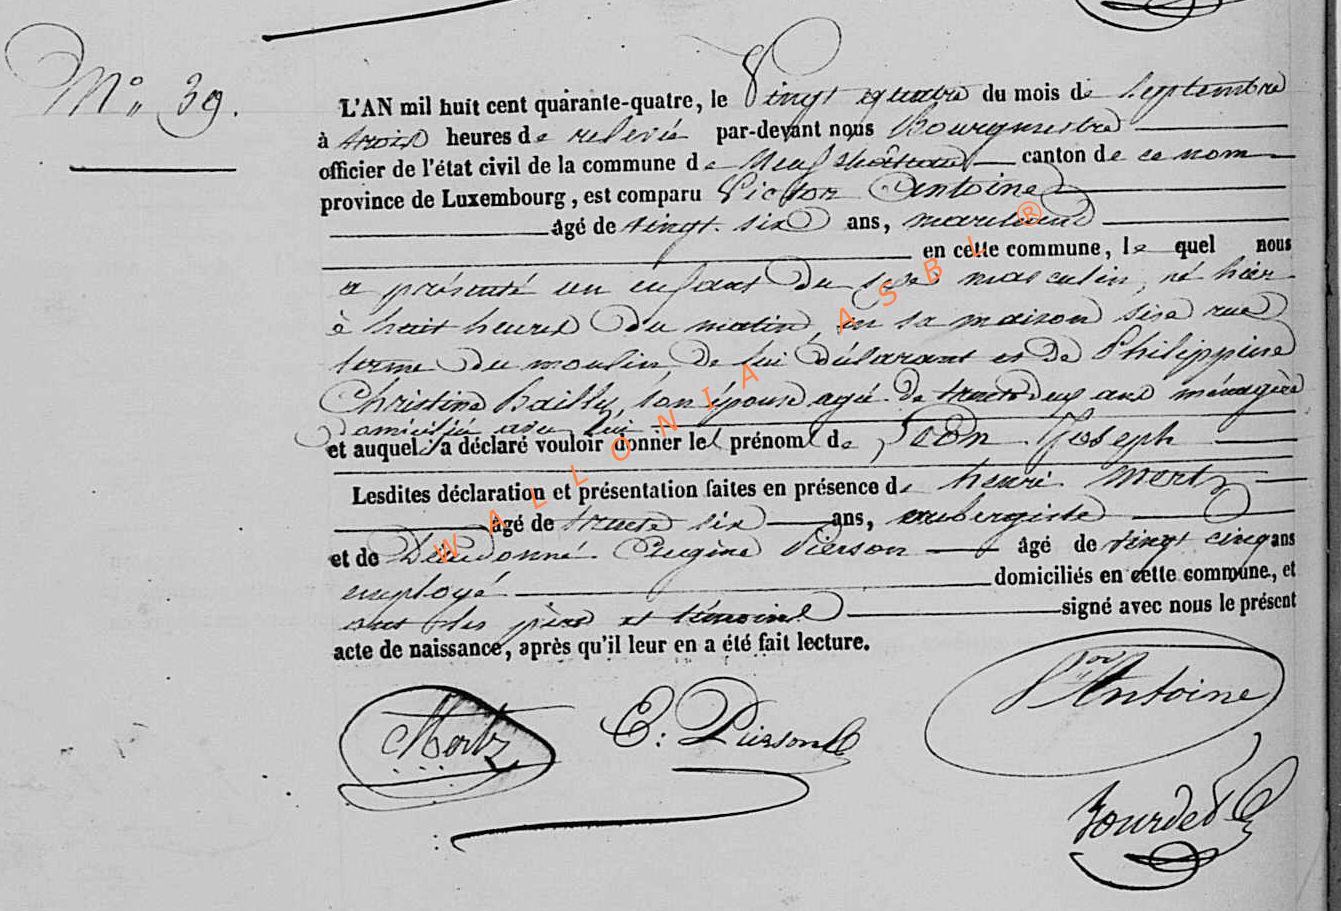 N° 39.
L'AN mil huit cent quarante-quatre, le Vingt quatre du mois de Septembre
à trois heures de relevée par-devant nous Bourgmestre
officier de l'état civil de la commune de Neufchâteau canton de ce nom
province de Luxembourg, est comparu Victor Antoine
âgé de vingt-six ans, marchand
en cette commune, lequel nous
a présenté un enfant du sexe masculin, né hier
à huit heures du matin, en sa maison sise rue
terme du moulin, de lui déclarant et de Philippine
Christine Bailly, son épouse agée de trente deux ans ménagère
domiciliée avec lui
et auquel il a déclaré vouloir donner les prénoms de Jean Joseph
Lesdites déclaration et présentation faites en présence de henri Mertz
âgé de trente six ans, aubergiste
et de Dieudonné Eugène Pierson âgé de vingt cinq ans
employé domiciliés en cette commune, et
ont les père et témoins signé avec nous le présent
acte de naissance, après qu'il leur en a été fait lecture.
Mertz E. Pierson Vor Antoine
WALLONIA ASBL ®